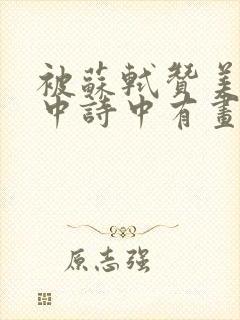 被蘇軾贊美
中詩中有畫
原志强